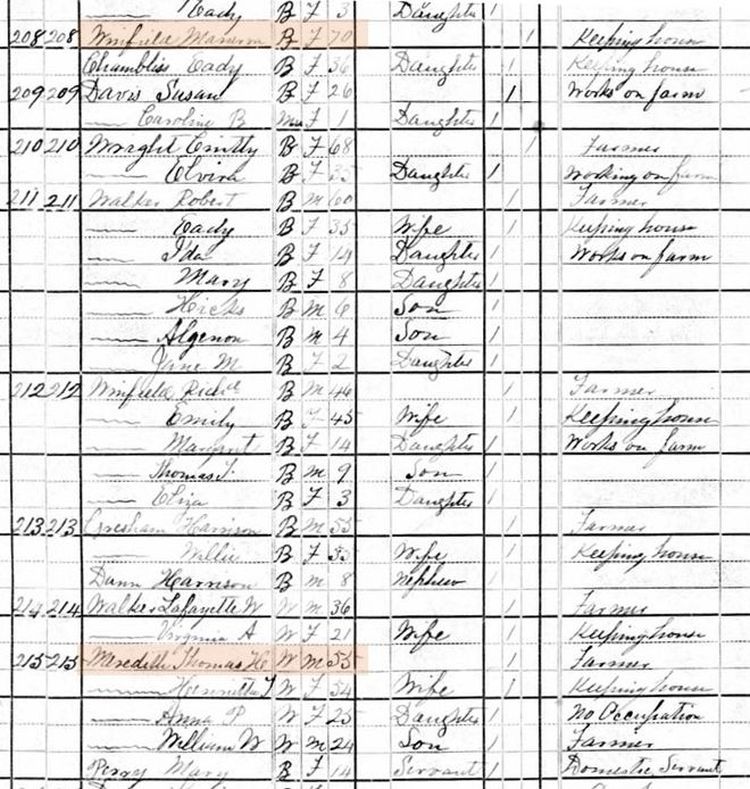 Eady B F 3 Daughter /
208 208 Winfield B F 70 / Keeping house
Chambliss Eady B F 36 Daughter / Keeping house
209 209 Davis Susan B F 26 / Works on farm
Caroline B Mu F 1 Daughter /
210 210 Wright Emily B F 68 / Farmer
Elvira B F 35 Daughter / Working on farm
211 211 Walker Robert B M 60 / Farmer
Eady B F 35 Wife / Keeping house
Ida B F 14 Daughter / Works on farm
Mary B F 8 Daughter /
Hicks B M 6 Son /
Algenon B M 4 Son /
Jane M B F 2 Daughter /
212 212 Winfield B M 46 / Farmer
Emily B F 45 Wife / Keeping house
Margret B F 14 Daughter / Works on farm
Thomas J. B M 9 Son /
Eliza B F 3 Daughter /
213 213 Gresham Harrison B M 55 / Farmer
Willie B F 55 Wife / Keeping house
Dunn Harrison B M 8 Nephew /
214 214 Walker Lafayette W W M 36 / Farmer
Virginia A W F 21 Wife / Keeping house
215 215 Meredith Thomas H W M 55 / Farmer
Henrietta T W F 54 Wife / Keeping house
Anna P W F 25 Daughter / No Occupation
William W W M 24 Son / Farmer
Percy Mary B F 14 Servant / Domestic Servant